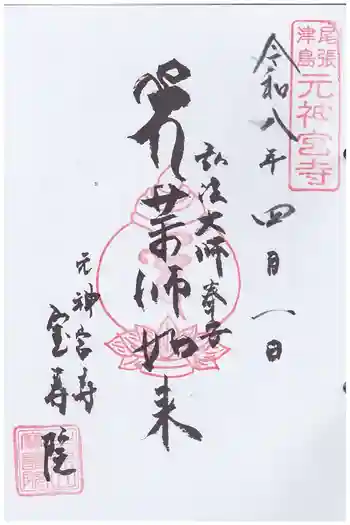 尾張
津島
元神宮寺
令和八年 四月一日
弘法大師 奉安
薬師如来
元神宮寺
宝寿院